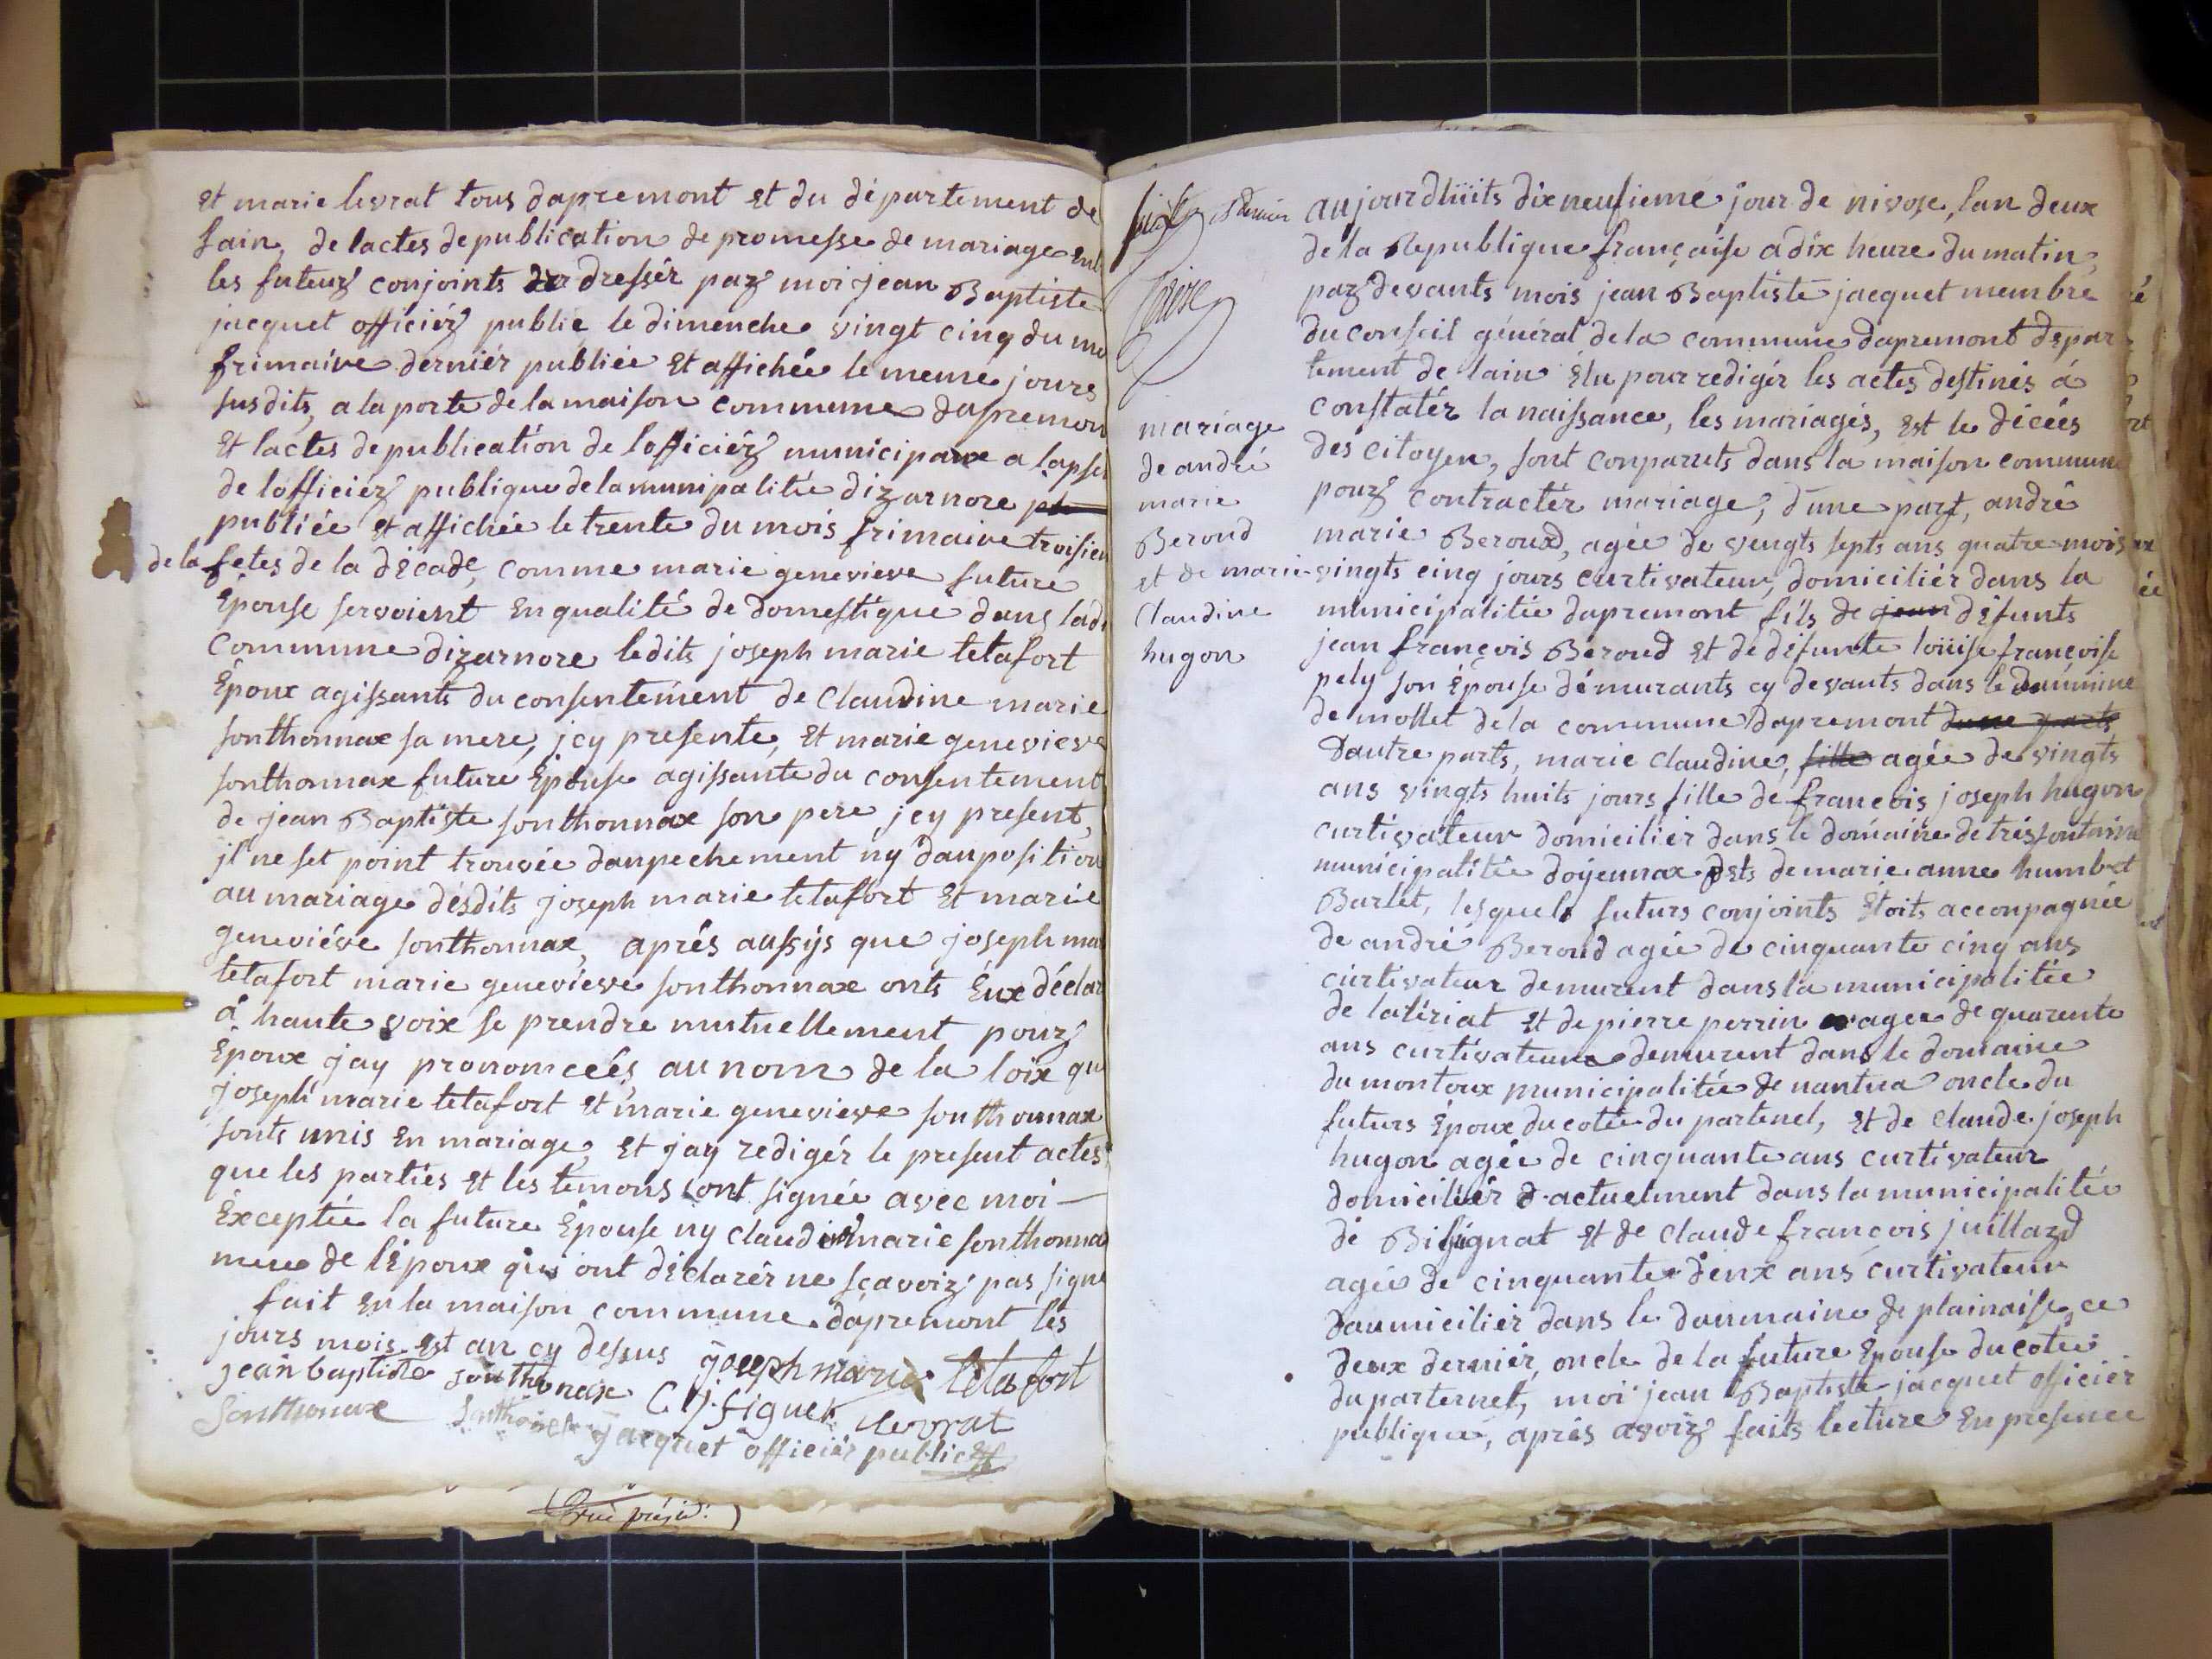 et marie levrat tous dapremont et du département de
lain, de lactes de publication de promesse de mariage ent
les futurs conjoints dresser par moi jean Baptiste
jacquet officier public le dimenche vingt cinq du mo
frimaire dernier publiée et affichée le meme jours
susdits, a la porte de la maison commune dapremon
et lactes de publication de lofficier municipaux a lapse
de lofficier publique de la munipalitée dizarnore
publiée et affichée le trente du mois frimaire troisiem
de la fetes de la décade, comme marie genevieve future
Épouse servoient en qualité de domestique dans ladi
commune dizarnore ledits joseph marie tetafort
Époux agissants du consentement de Claudine marie
sonthonnax sa mere, jcy presente, et marie genevieve
sonthonnax future Épouse agissante du consentement
de jean Baptiste sonthonnax son pere jcy present,
jl ne set point trouvée danpechement ny daupositions
au mariage désdits joseph marie tetafort et marie
geneviéve sonthonnax, aprés aussÿs que joseph mar
tetafort marie genevieve sonthonnax onts Eux déclar
á haute voix se prendre mutuellement pour
Époux jay prononcéés au nom de la loix que
joseph marie tetafort et marie genevieve sonthonnax
sonts unis en mariage, et jay redigér le present actes
que les parties et les temons sont signée avec moi —
Exceptée la future Épouse ny claudine marie sonthonna
mere de l'Époux qui ont déclarér ne sçavoir pas signe
fait en la maison commune dapremont les
jours mois est an cy dessus joseph marie tetafort
jean baptiste sonthonax C J figuet levrat
Sonthonax Sonthonax jacquet officier public
mariage
de andré
marie
Beroud
et de marie
Claudine
hugon
aujourdhüits dix neufieme jour de nivose, lan deux
de la Republique française a dix heure du matin,
par devants mois jean Baptiste jacquet membre
du conseil général de la commune dapremont depar
tement de lain Élu pour redigér les actes destinés á
constatér la naissance, les mariages, est le décées
des citoyen, sont conparuts dans la maison commune
pour contractér mariage, d'une part, andré
marie Beroud, agée de vengts septs ans quatre mois
vingts cinq jours curtivateur, domiciliér dans la
municipalitée dapremont fils de jean défunts
jean françois Beroud et de défunte loüise françoise
pely son Épouse démurants cy devants dans le daumine
de mollet de la commune dapremont dune parts
Dautre parts, marie Claudine, fille agée de vingts
ans vingts huits jours fille de francois joseph hugon
curtivateur domiciliér dans le domaine de très fontaine
municipalitée doÿennax Ests de marie anne humbet
Burlet, lesquels futurs conjoints Etoits acconpagnée
de andré Beroud agée de cinquante cinq ans
curtivateur demurent dans la municipalitée
de lalériat et de pierre perrin agée de quarente
ans curtivateur demurent dans le domaine
du montoux municipalitée de nantua oncle du
futurs Époux du cotée du partenel, et de claude joseph
hugon agée de cinquante ans curtivateur
domiciliér actuelment dans la municipalitée
dé Bisignat et de claude françois juillard
agée de cinquante deux ans curtivateur
daumicilier dans le daumaine de plainaise, ce
deux derniér, oncle de la future Épouse du cotée
du parternel, moi jean Baptiste jacquet officier
publique, aprés avoir faits lecture En presence